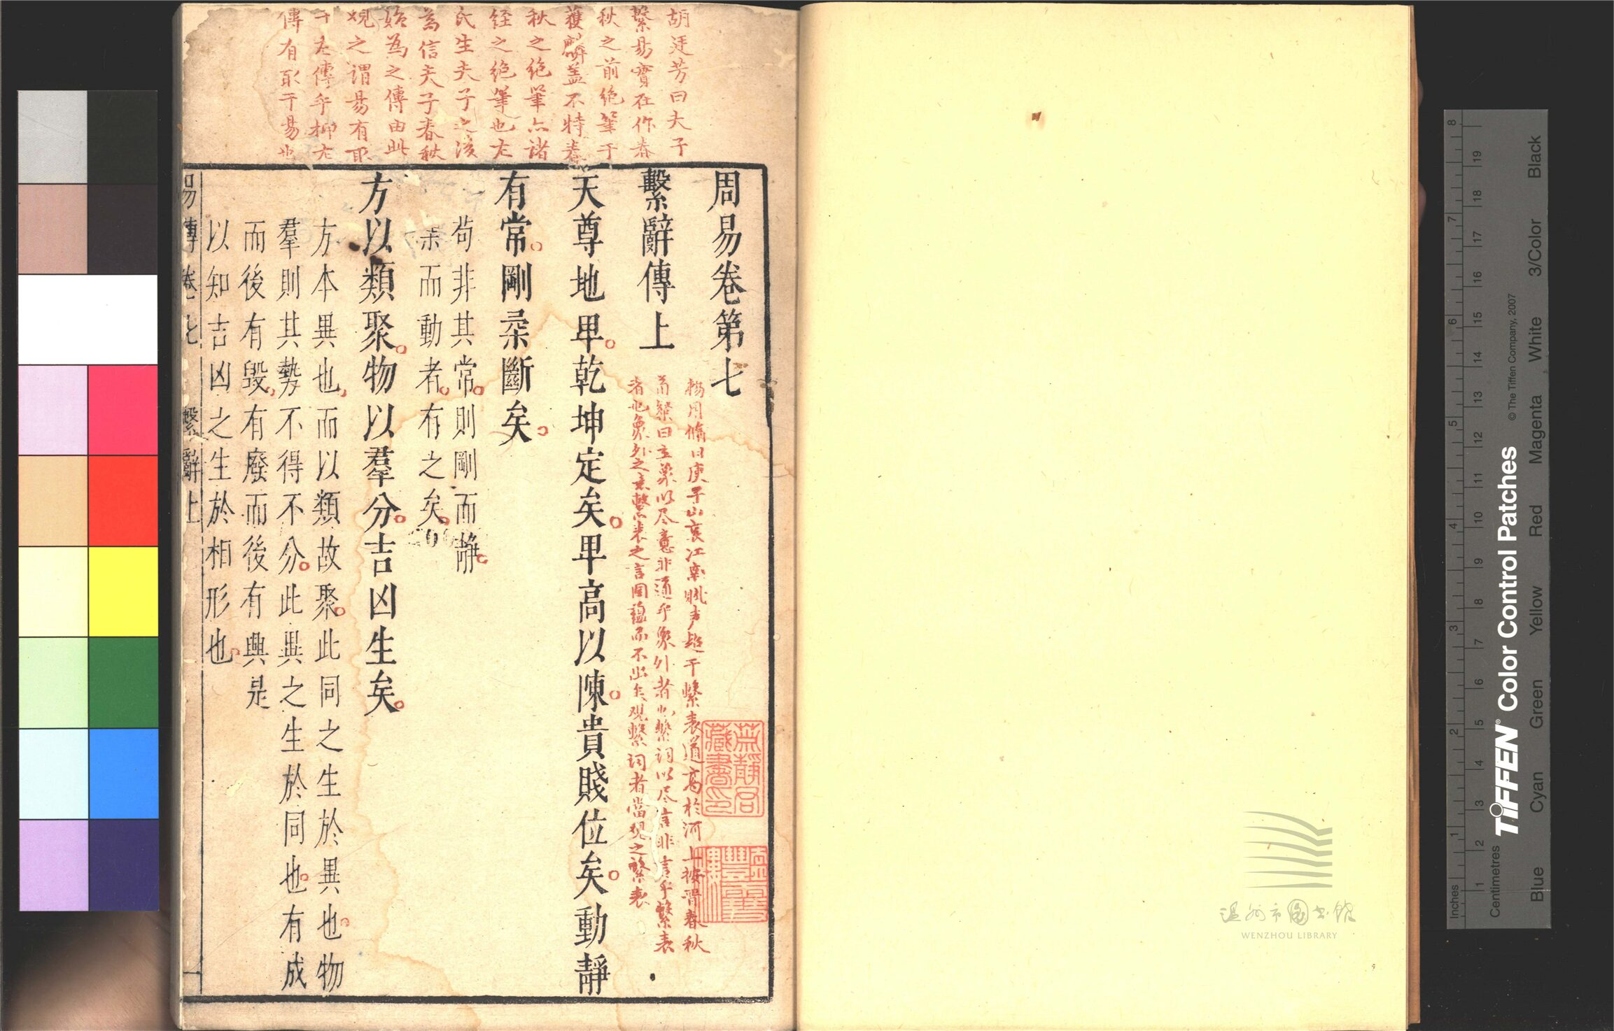 胡廷芳曰夫子
繫易實在作春
秋之前絶筆于
獲麟蓋不特春
秋之絶筆亦諸
經之絶筆也左
氏生夫子之後
為信夫子春秋
始為之傳由此
觀之謂易有取
于左傳乎抑左
傳有取于易也
周易卷第七
繫辭傳上
天尊地卑乾坤定矣卑高以陳貴賤位矣動靜
有常剛柔斷矣
苟非其常則剛而靜
柔而動者有之矣
方以類聚物以羣分吉凶生矣
方本異也而以類故聚此同之生於異也物
羣則其勢不得不分此異之生於同也有成
而後有毀有廢而後有興是
以知吉凶之生於相形也
易傳卷七 繫辭上 一
楊用脩曰庾子山哀江南賦聲超于繫表道高於河上按晉春秋
荀粲曰立象以尽意非通乎象外者也繫詞以尽言非言乎繫表
者也象外之意繫表之言固蘊而不出矣觀繫詞者當見之繫表
溫州市圖書館
WENZHOU LIBRARY
TIFFEN Color Control Patches
© The Tiffen Company, 2007
Inches
Centimetres
Blue Cyan Green Yellow Red Magenta White 3/Color Black